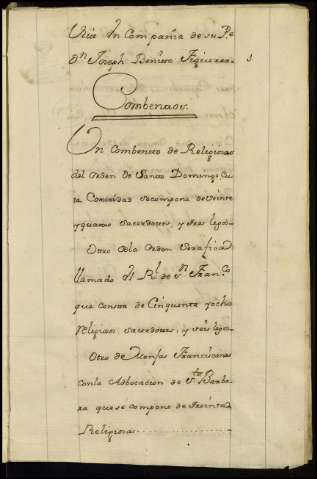 Vive En Compañia de su P.e
D.n Joseph Benito Figueroa
1
Combentos
Un Combento de Relegiosos
del orden de Santo Domingo, cu
ia Comunidad secompone deveinte
y quatro sacerdotes, y tres legos
Otro dela orden Serafica
llamado el R.l de S.n Fran.co
que consta de Cinquenta y ocho
Relegiosos sacerdotes, y seis legos
Otro de Monjas Franciscanas
conla Adbocacion de S.ta Barba
ra que se compone de treinta
Religiosas